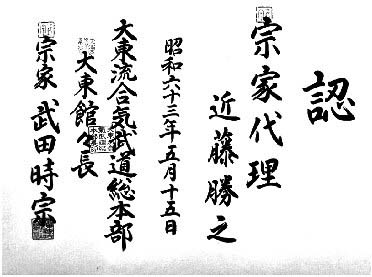 認
宗家代理
近藤勝之
昭和六十三年五月十五日
大東流合気武道総本部
大東館々長
宗家 武田時宗